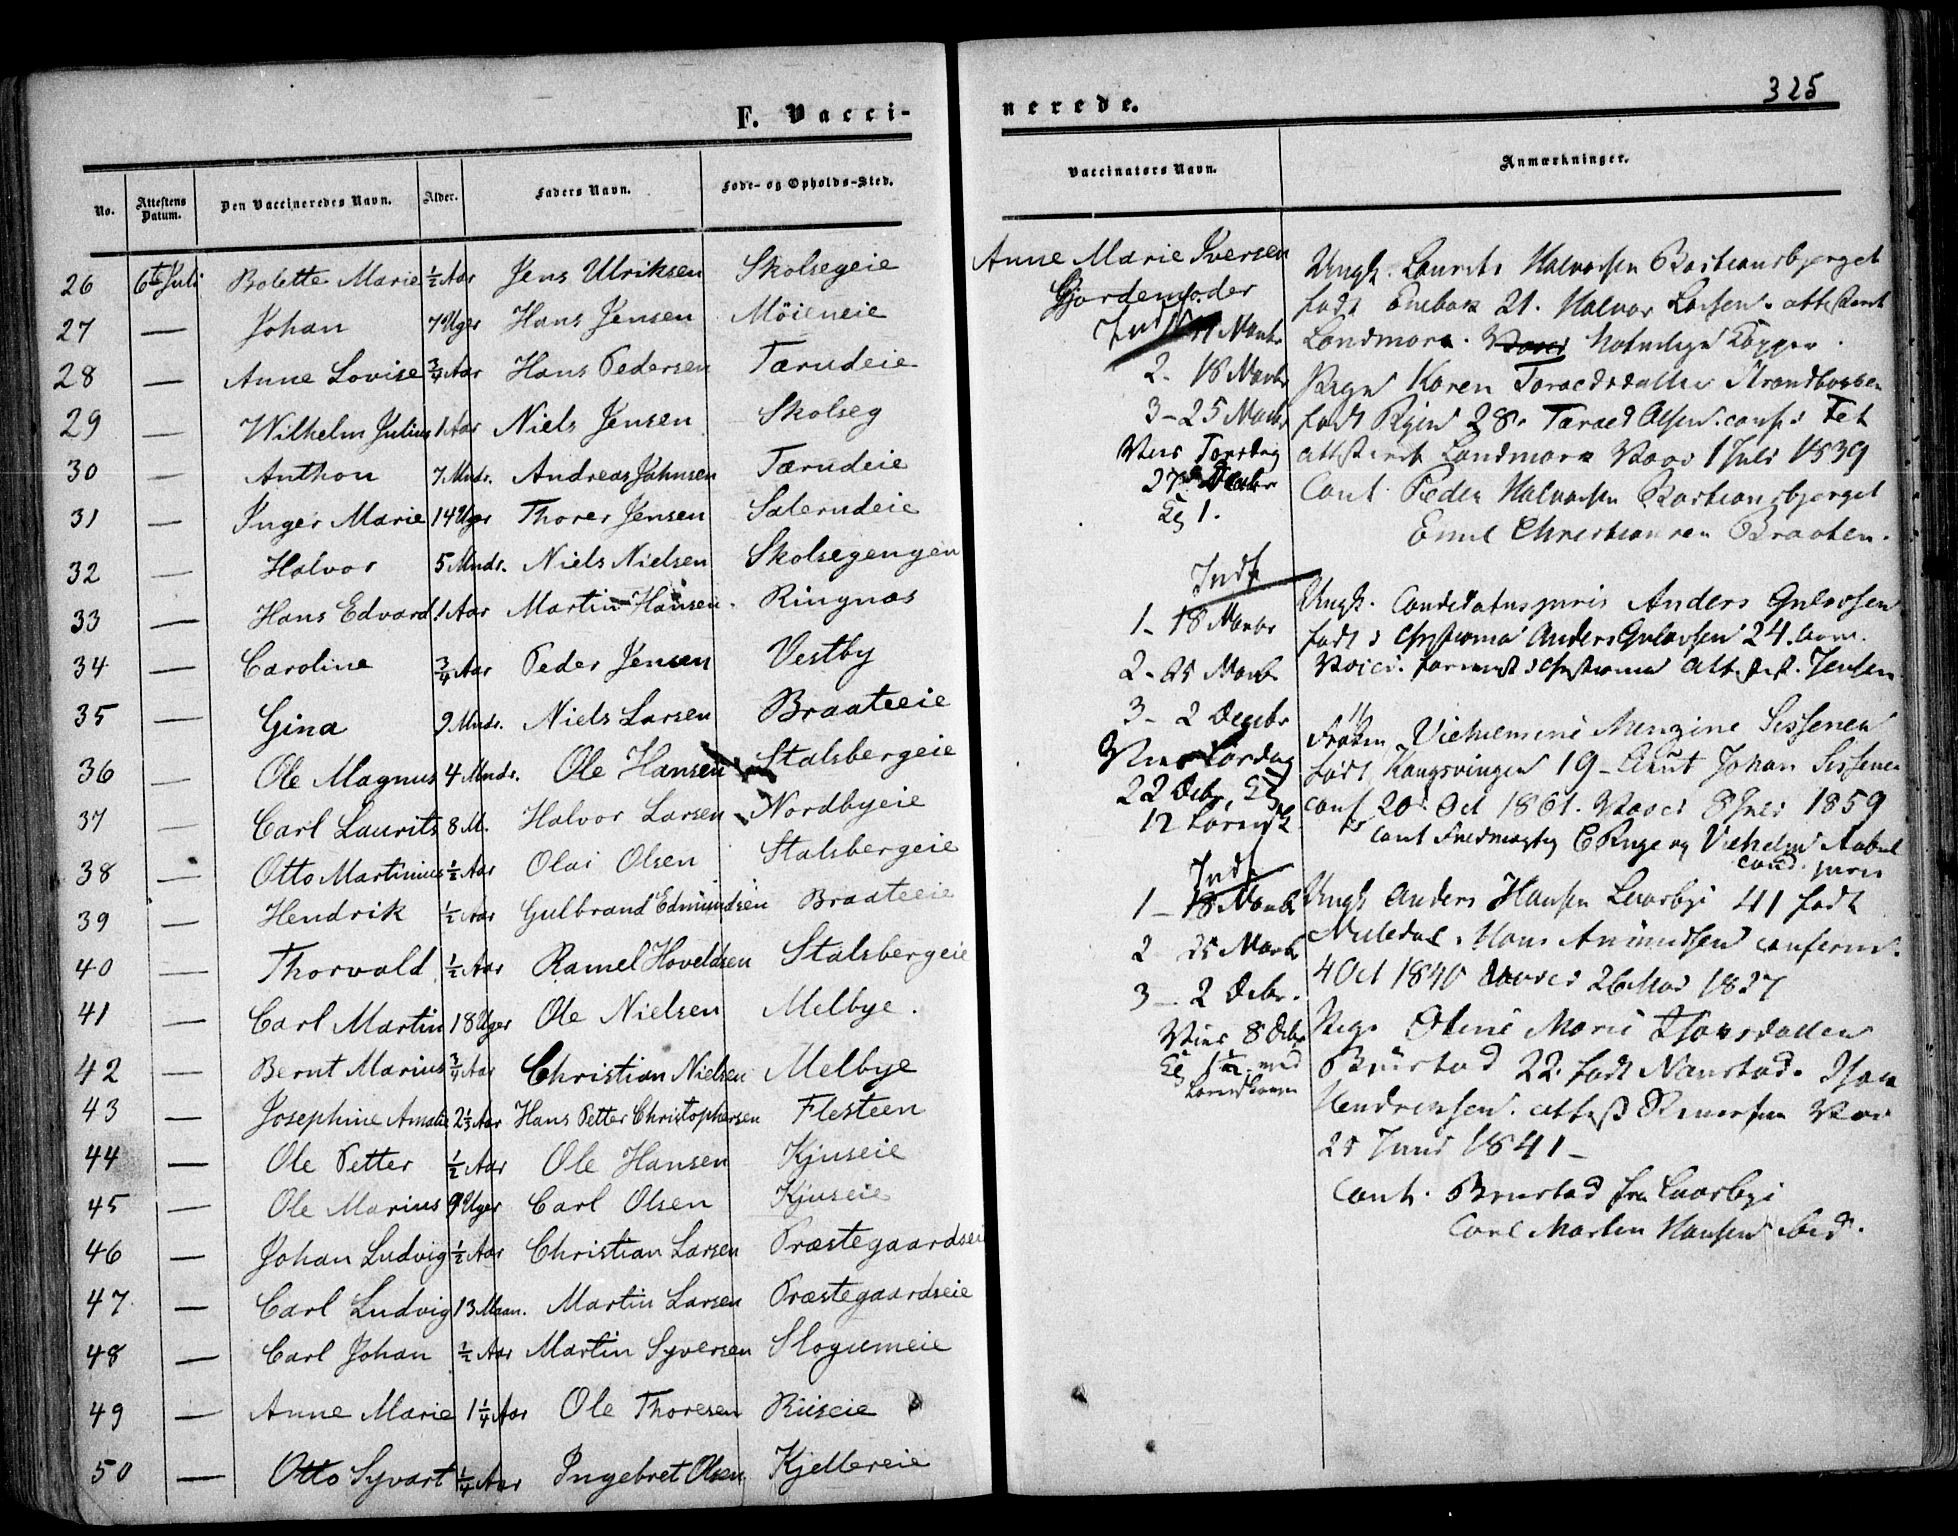 325
F. Vacci-
nerede.
No.
Attestens Datum.
Den Vaccineredes Navn.
Alder.
Faders Navn.
Føde- og Opholds-Sted.
Vaccinators Navn.
Anmærkninger.
26 6te Juli Bolette Marie ½ Aar Jens Ulriksen Skolsegeie
27 — Johan 7 Uger Hans Jensen Möieneie
28 — Anne Lovise ¾ Aar Hans Pedersen Tærudeie
29 — Wilhelm Julius 1 Aar Niels Jensen Skolseg
30 — Anthon 7 Mndr. Andreas Johnsen Tærudeie
31 — Inger Marie 14 Uger Thorer Jensen Salerudeie
32 — Halvor 5 Mndr. Niels Nielsen Skolsegengen
33 — Hans Edvard 1 Aar Martin Hansen. Ringnæs
34 — Caroline ¾ Aar Peder Jensen Vestby
35 — Gina 9 Mndr. Niels Larsen Braateeie
36 — Ole Magnus 4 Mndr. Ole Hansen Stalsbergeie
37 — Carl Laurits 8 M. Halvor Larsen Nordbyeie
38 — Otto Martinius ½ Aar Olai Olsen Stalsbergeie
39 — Hendrik ½ Aar Gulbrand Edmundsen Braateeie
40 — Thorvald ½ Aar Ramel Hoveldsen Stalsbergeie
41 — Carl Martin 18 Uger Ole Nielsen Melbye.
42 — Bernt Marius ¾ Aar Christian Nielsen Melbye
43 — Josephine Amalie 2⅓ Aar Hans Petter Christophersen Flesteen
44 — Ole Petter ½ Aar Ole Hansen Kjuseie
45 — Ole Marius 9 Uger Carl Olsen Kjuseie
46 — Johan Ludvig ½ Aar Christian Larsen Præstegaardseie
47. — Carl Ludvig 13 Maan. Martin Larsen Præstegaardseie
48 — Carl Johan ½ Aar Martin Syversen Slogumeie
49 — Anne Marie 1¼ Aar Ole Thoresen Riiseie
50 — Otto Syvart ¼ Aar Ingebret Olsen Kjellereie
Anne Marie Iversen
Gjordemoder
11 Novbr
2. 18 Novbr
3 – 25 Novbr
Vies Torsdag
27
1.
Indf
1 – 18 Novbr
2 – 25 Novbr
3 – 2 Decbr
Lørdag
22 Decbr.
12
Indf
1 – 18 Novbr
2 25 Novbr
3 – 2 Decbr.
Vies 8 Decbr
1½ med
Ungk. Laurits Halvorsen Bastiansbjerget
født Enebak 21. Halvor Larsen. attesteret
Landmark. naturlige Kopper.
Pigen Karen Taraldsdatter Strandbakken
født 28. Tarald Olsen. conf. Fet
attesteret Landmark Vacc 1 Juli 1839
Caut. Peder Halvorsen Bastiansbjerget
Emil Christiansen Braaten.
Ungk. Candidatus juris Anders Gulovsen
født i Christiania Anders Gulovsen 24.
Christiania attest. Jensen
Frøken Vilhelmine Sissener
født Kongsvinger 19 – Johan Sissener
conf 20 Oct 1861. Vacc 8 Juli 1859
Caut og Vilhelm
cand. juris
Ungk Anders Hansen 41 født
Hans Amundsen conferm.
4 Oct 1840 26 Mai 1827
Pige Oline Marie Isaksdatter
Brustad 22. født Nanstad. Isak
Hendriksen. attest Vac
25 Juni 1841 –
Caut. Brustad fra
Carl Martin Hansen ibid.